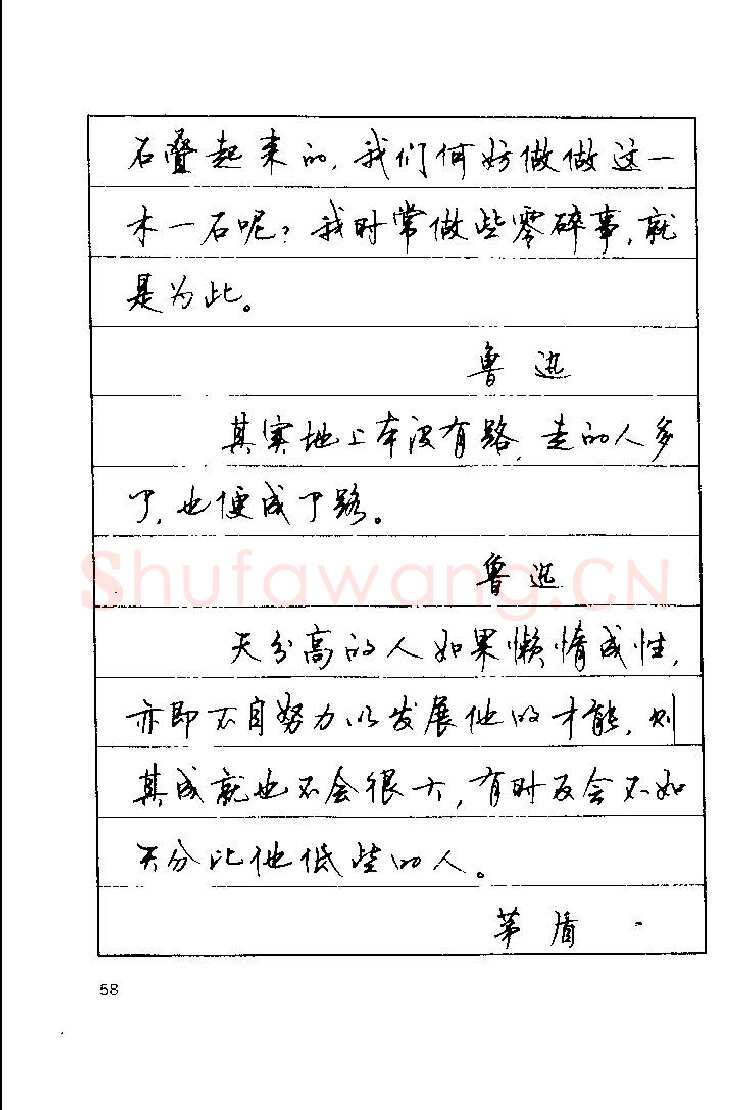 石叠起来的，我们何妨做做这一
木一石呢？我时常做些零碎事，就
是为此。
鲁迅
其实地上本没有路，走的人多
了，也便成了路。
鲁迅
Shufawang.CN
天分高的人如果懒惰成性，
亦即不自努力以发展他的才能，则
其成就也不会很大，有时反会不如
天分比他低些的人。
茅盾
58